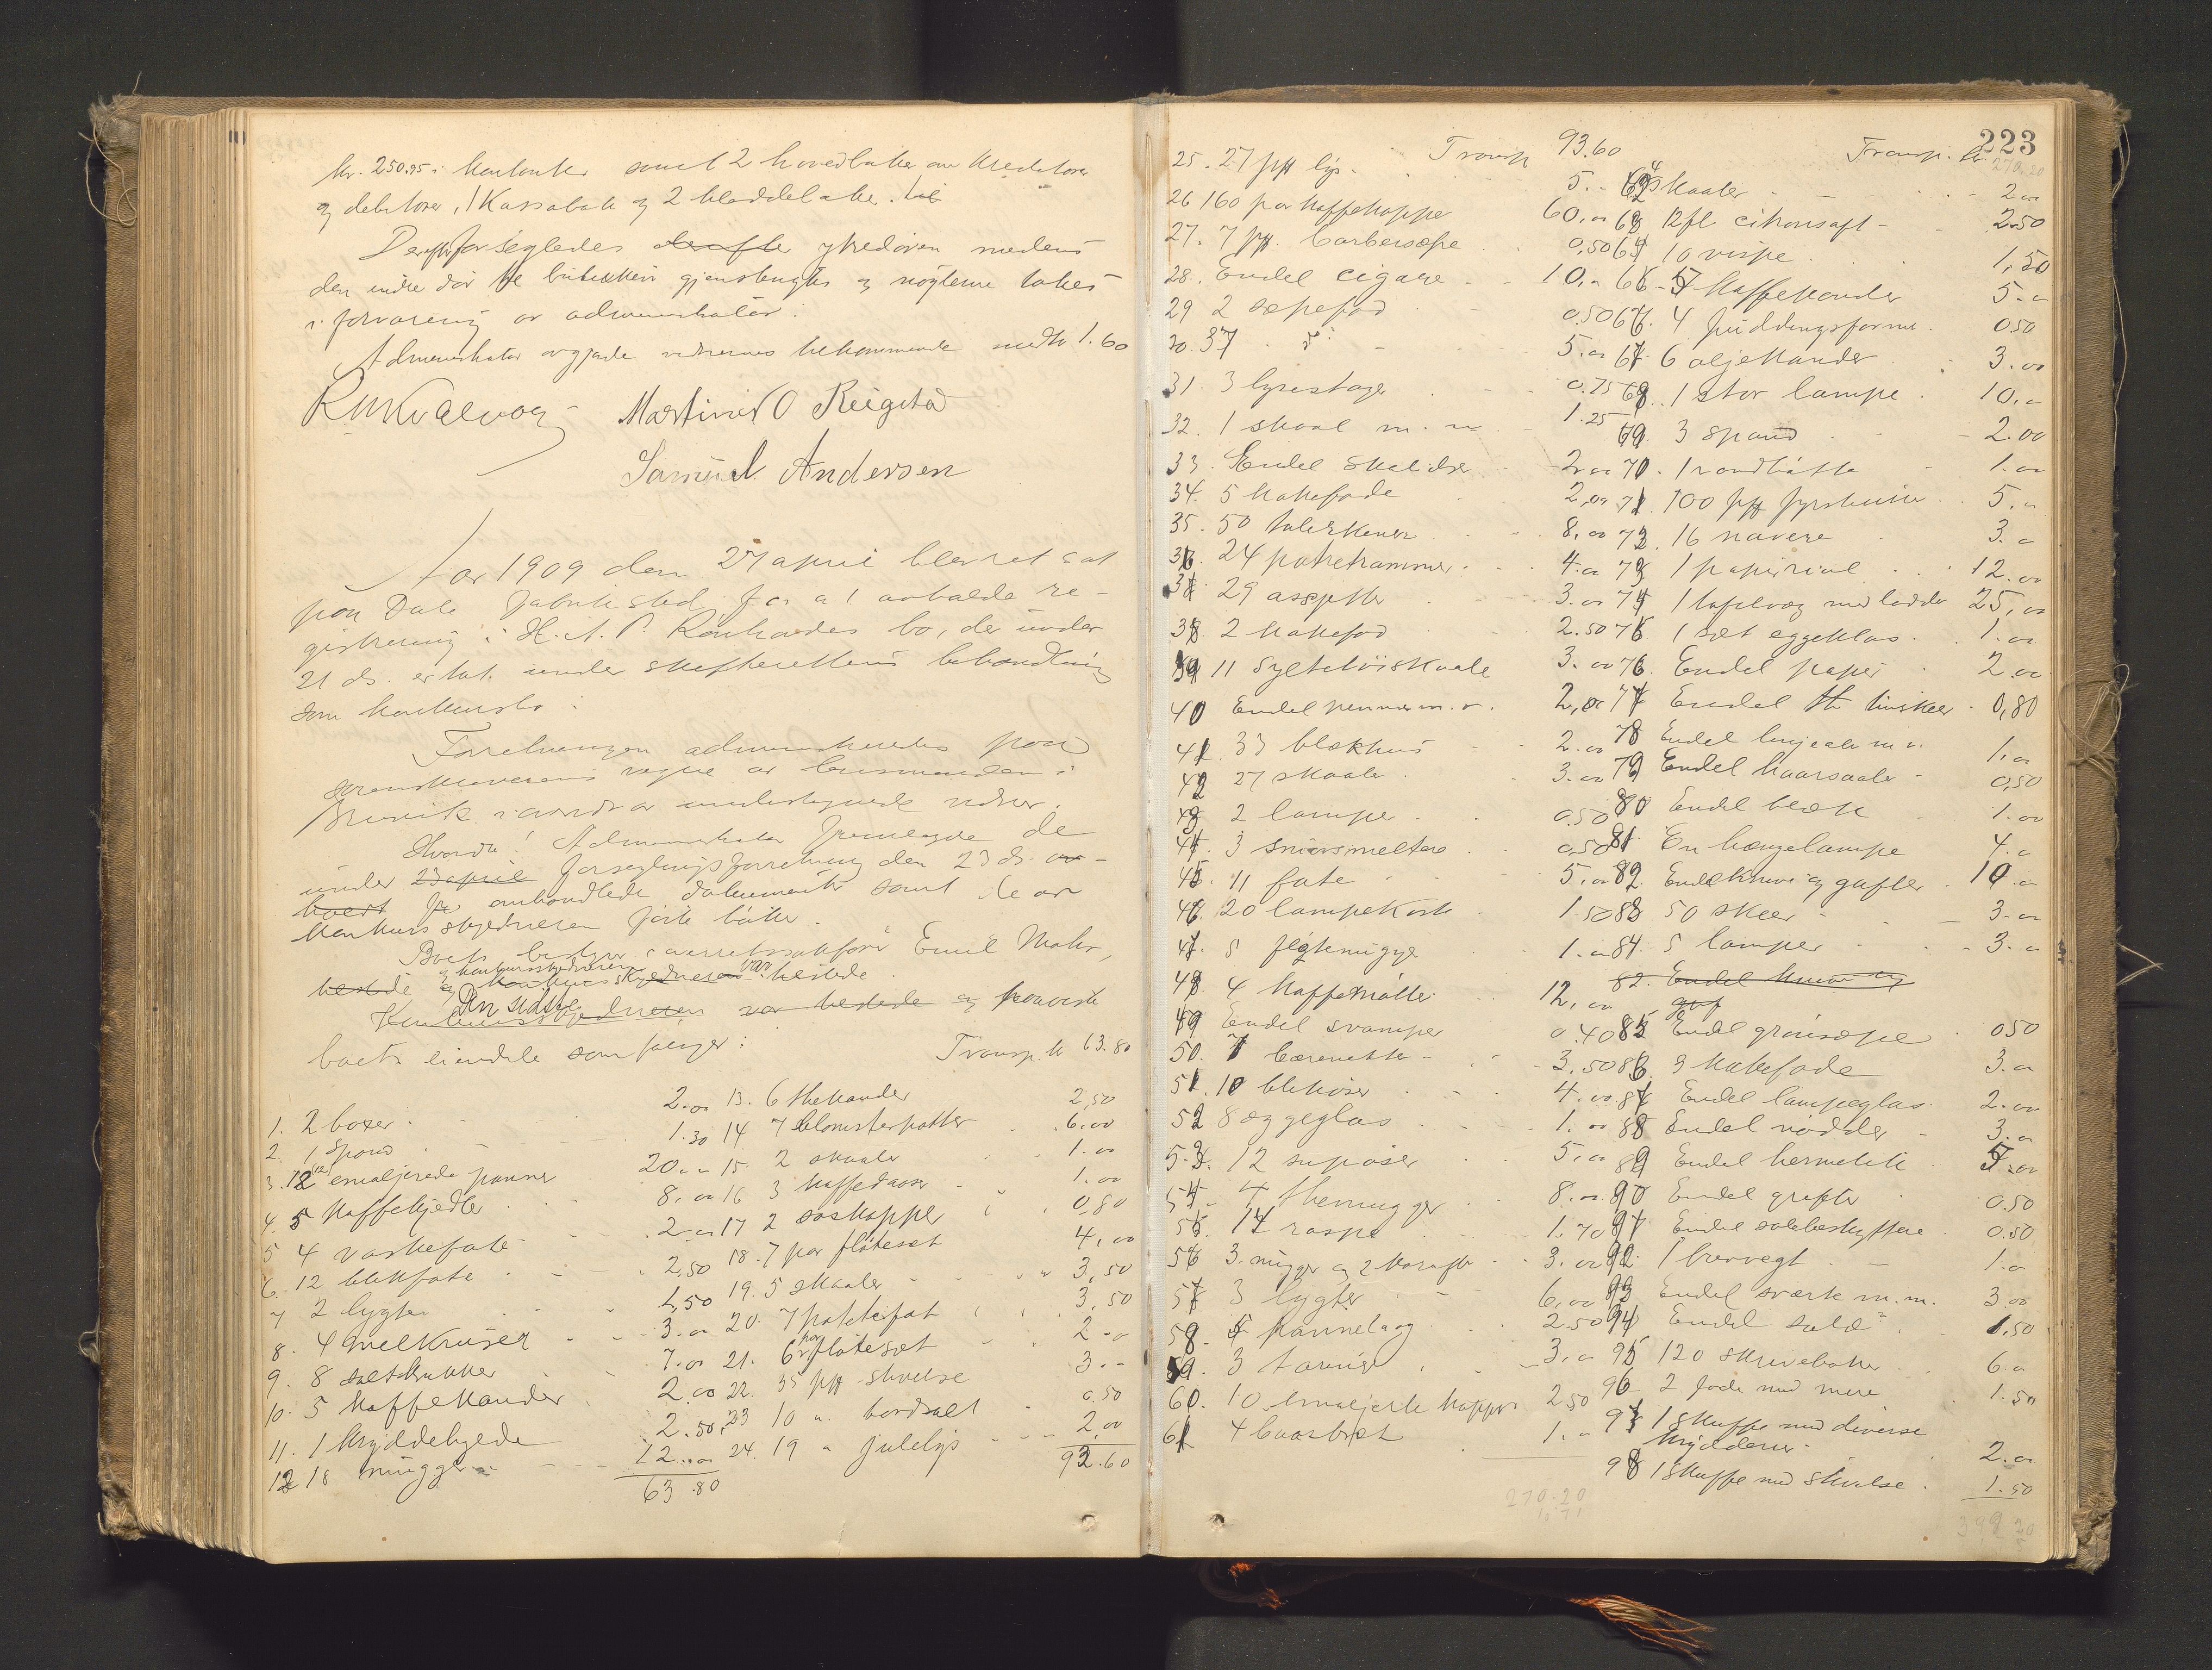 kr. 250.95 i kontanter samt 2 hovedbøker over kreditorer
og debitorer, 1 Kassabok og 2 kladdebøker.
Derefter forsegledes derefter ytredøren medens
den indre dør til butikken gjenstengtes og nøglerne tokes
i forvaring av administrator.
Administrator avgjorde vidnernes tilkommende med kr 1.60
Martinus O Reigstad
Samuel Andersen
Aar 1909 den 27 april blev ret sat
paa Dale fabriksted for at avholde re-
gistrering i H. A. P. bo, der under
21 ds. er tat under skifterettens behandling
som konkursbo.
Forretningen administreredes paa
sorenskriverens vegne av lensmanden i
Bruvik i nærvær av undertegnede vidner.
Hvorda! Administrator fremlagde de
under 23 april forseglingsforretning den 23 ds.
omhandlede dokumenter samt de av
konkursskyldneren førte bøker.
Boets bestyrer overretssakfører Emil Mohr,
og konkursskyldneren var tilstede.
Den sidste
Konkursskyldneren var tilstede og paaviste
boets eiendele som følger:
Transp. kr 63.80
1. 2 boxer 2.00
2. 1 spand 1.30
3. 12 emaljerede panner 20.00
4. 5 kaffekjedler 8.00
5 4 vaskefate 2.00
6. 12 blikfate 2.50
7 2 lygter 1.50
8. 4 melkruser 3.00
9. 8 saltkrukker 7.00
10. 5 Kaffekander 2.00
11. 1 krydderhylde 2.50
12 18 mugger 12.00
63.80
13. 6 thekander 2,50
14 7 blomsterpotter 6.00
15. 2 skaaler 1.00
16 3 kaffedaaser 1.00
17 2 saskopper 0,80
18. 7 par fløtesæt 4,00
19. 5 skaaler 3,50
20. 7 potetefat 3,50
21. 6 par fløtesæt 2.00
22. 35 pk stivelse 3.-
23 10 " bordsalt 0.50
24. 19 " julelys 2,00
92.60
223
Transp 93.60
25. 27 pk lys 5.-
26 160 par kaffekopper 60.00
27. 7 pk. barbersæpe 0,50
28. Endel cigarer 10.00
29 2 sæpefad 0.50
30. 37 do 5.00
31. 3 lysestager 0.75
32. 1 skaal m. m. 1.25
33. Endel skeidser 2.00
34. 5 kakefade 2,00
35. 50 talerkener 8,00
36. 24 potretrammer 4.00
37. 29 assietter 3.00
38. 2 kakefad 2.50
39 11 syltetøiskaale 3.00
40 Endel penner m. v. 2,00
41 33 blækhus 2.00
42 27 skaaler 3.00
43 2 lamper 0.50
44. 3 smørsmeltere 0.50
45. 11 fate 5.00
46. 20 lampekoste 1.50
47. 5 fløtemugge 1.00
48 4 kaffemøller 12.00
49 Endel svamper 0.40
50. 7 bærenetter 3.50
51. 10 blikøser 4.00
52 8 æggeglas 1.00
53. 12 supøser 5.00
54. 4 themugger 8.00
55. 14 raspe 1.70
56 3 mugger og 2 karafler 3.00
57 3 lygter 6,00
58. 5 pannelaag 2.50
59. 3 tøriner 3.00
60. 10 emaljerte kopper 2.50
61 4 bærbret 1.00
270.20
Transp. kr 270.20
62 4 skaaler 2.00
63 12 fl citronsaft 2.50
64 10 vispe 1,50
65 7 kaffekander 5.00
66. 4 puddingsformer 0.50
67. 6 oljekander 3.00
68. 1 stor lampe 10.00
69. 3 spand 2.00
70. 1 vandbøtte 1.00
71. 100 pk fyrstikker 5.00
72. 16 navere 3.00
73 1 papirrival 12.00
74 1 tafelvæg med lodder 25,00
75 1 sæt eggeklas 1.00
76. Endel papir 2.00
77 Endel the tinskeer 0,80
78 Endel linjeale m v. 1.00
79 Endel haarsaaler 0,50
80 Endel blæk 1.00
81. En hængelampe 4.00
82. Endel knive og gafler 10.00
83 50 skeer 3.00
84. 5 lamper 3.00
82. Endel knive og
gaf
85 Endel grønsæpe 0.50
86. 9 kakefade 3.00
87 Endel lampeglas 2.00
88 Endel nødder 3.00
89 Endel hermetik 5.00
90 Endel grifler 0.50
91 Endel sølebeskyttere 0.50
92. 1 brevvegt 1.00
93 Endel sværte m.m. 3.00
94 Endel sald 1.50
95 120 skrivebøker 6.00
96 2 fade med mere 1.50
97 1 skuffe med diverse
krydderier 2.00
98 1 skuffe med stivelse 1.50
399.20